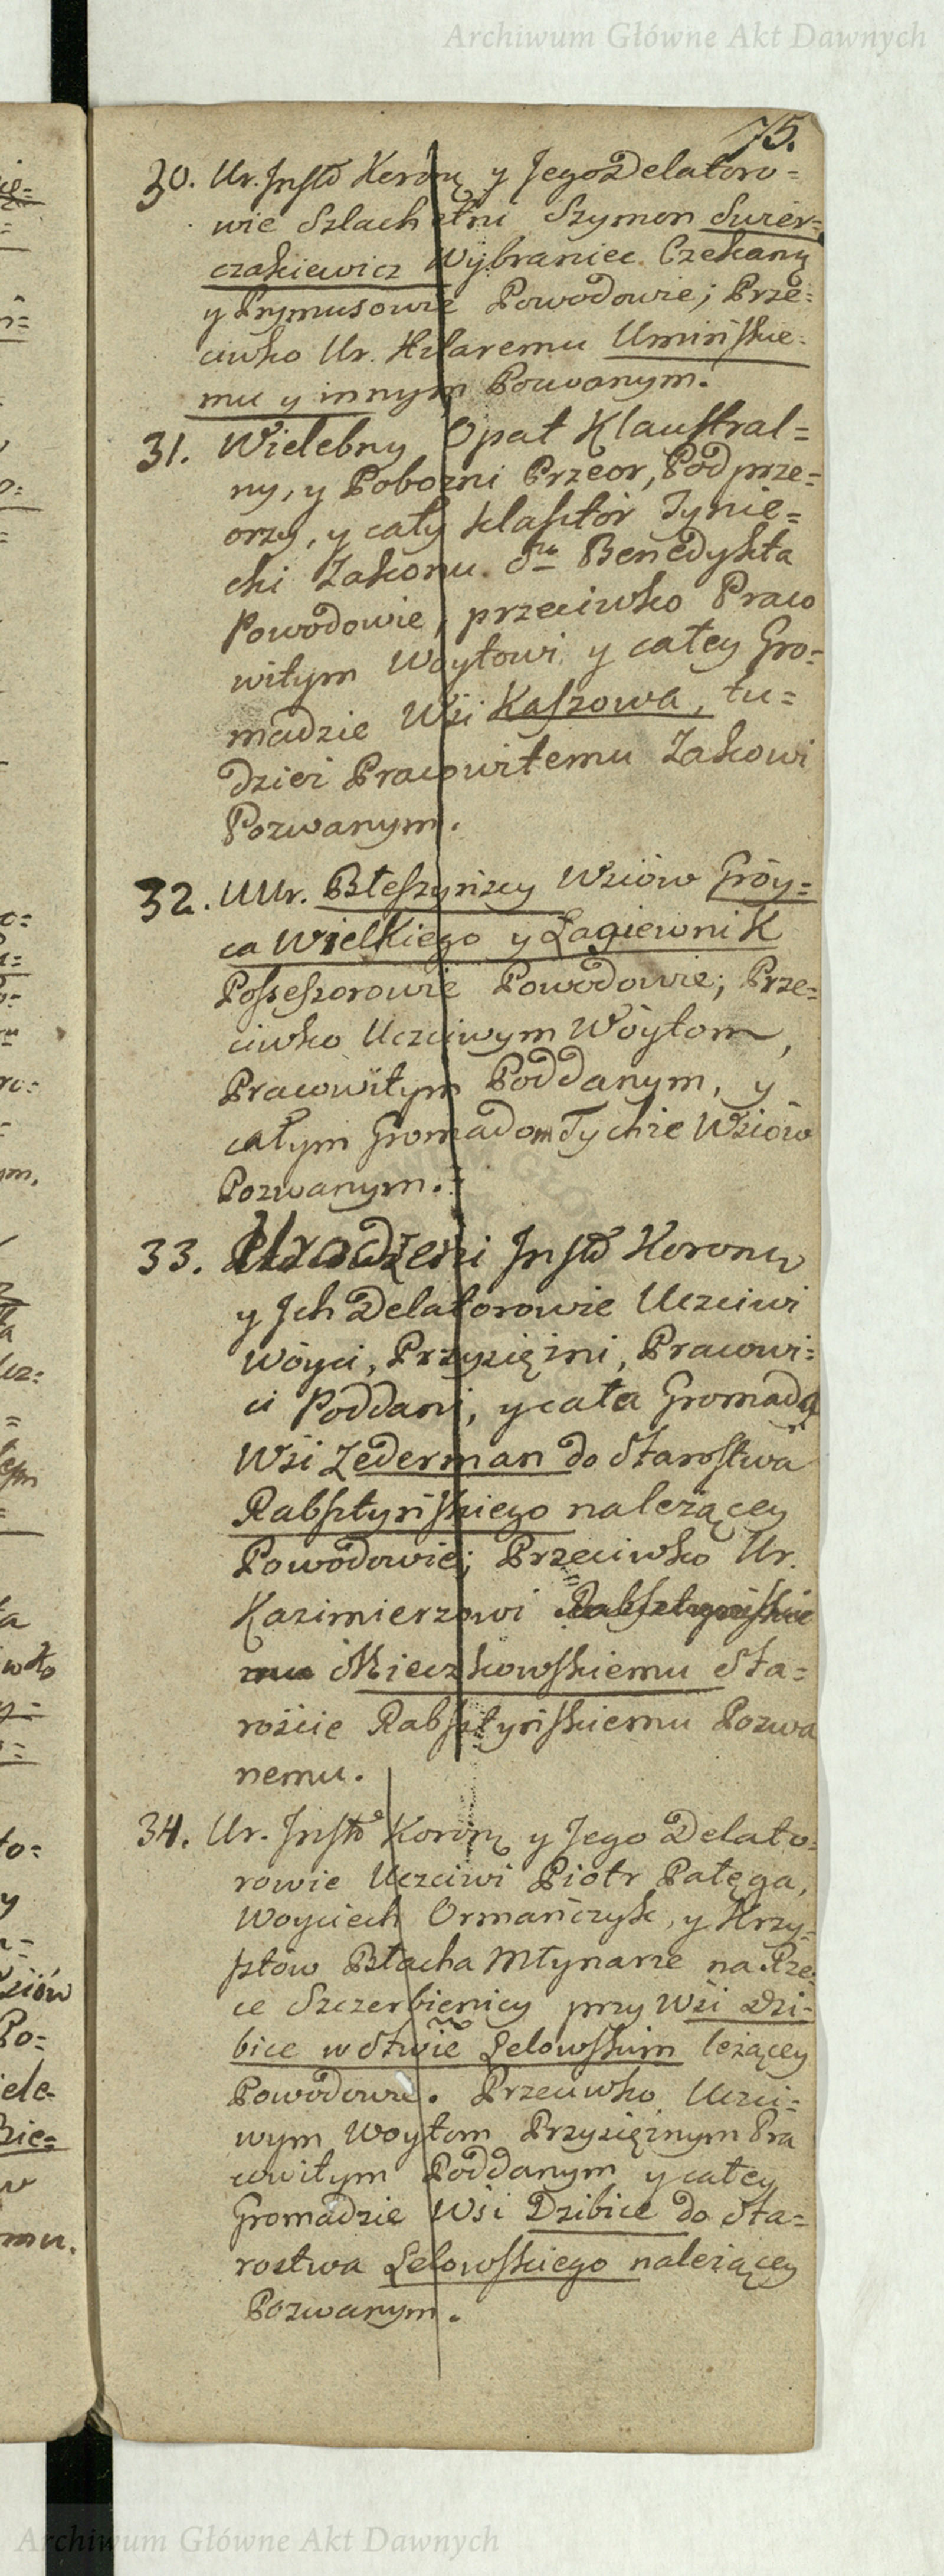 Archiwum Główne Akt Dawnych
75.
30. Ur. Instr Koronny y Jego Delatoro=
wie Szlachetni Szymon Swier=
czakiewicz Wybraniec Czekany
y Prymusowie Powodowie; Prze=
ciwko Ur. Hilaremu Umińskie=
mu y innym Pozwanym.
31. Wielebny Opat Klaustral=
ny, y Pobożni Przeor, Podprze=
orzy, y cały klasztor Tynie=
cki Zakonu S. Benedykta
Powodowie, przeciwko Praco
witym Woytowi y całey Gro=
madzie Wsi Kaszowa, tu=
dzież Pracowitemu Zakowi
Pozwanym.
32. UUr. Błeszyńscy Wsiów Gróy=
ca Wielkiego y Łagiewnik
Possessorowie Powodowie; Prze=
ciwko Uczciwym Wóytom,
Pracowitym Poddanym, y
całym Gromadom Tychże Wsiów
Pozwanym.
33. Urodzeni Instr Koronny
y Ich Delatorowie Uczciwi
Wóyci, Przysiężni, Pracowi=
ci Poddani, y cała Gromada
Wsi Zederman do Starostwa
Rabsztyńskiego należącey
Powodowie; Przeciwko Ur.
Kazimierzowi Rabsztyńskie
mu Mieczkowskiemu Sta=
roście Rabsztyńskiemu Pozwa
nemu.
34. Ur. Instr Koronny y Jego Delato=
rowie Uczciwi Piotr Pałęga,
Woyciech Ormańczyk, y Krzy=
sztow Błacha Młynarze na Rze=
ce Szczerbienicy przy Wsi Dzi=
bice w Stwie Lelowskim leżącey
Powodowie. Przeciwko Uczci=
wym Woytom Przysiężnym Pra
cowitym Poddanym y całey
Gromadzie Wsi Dzibice do Sta=
rostwa Lelowskiego należącey
Pozwanym.
Archiwum Główne Akt Dawnych